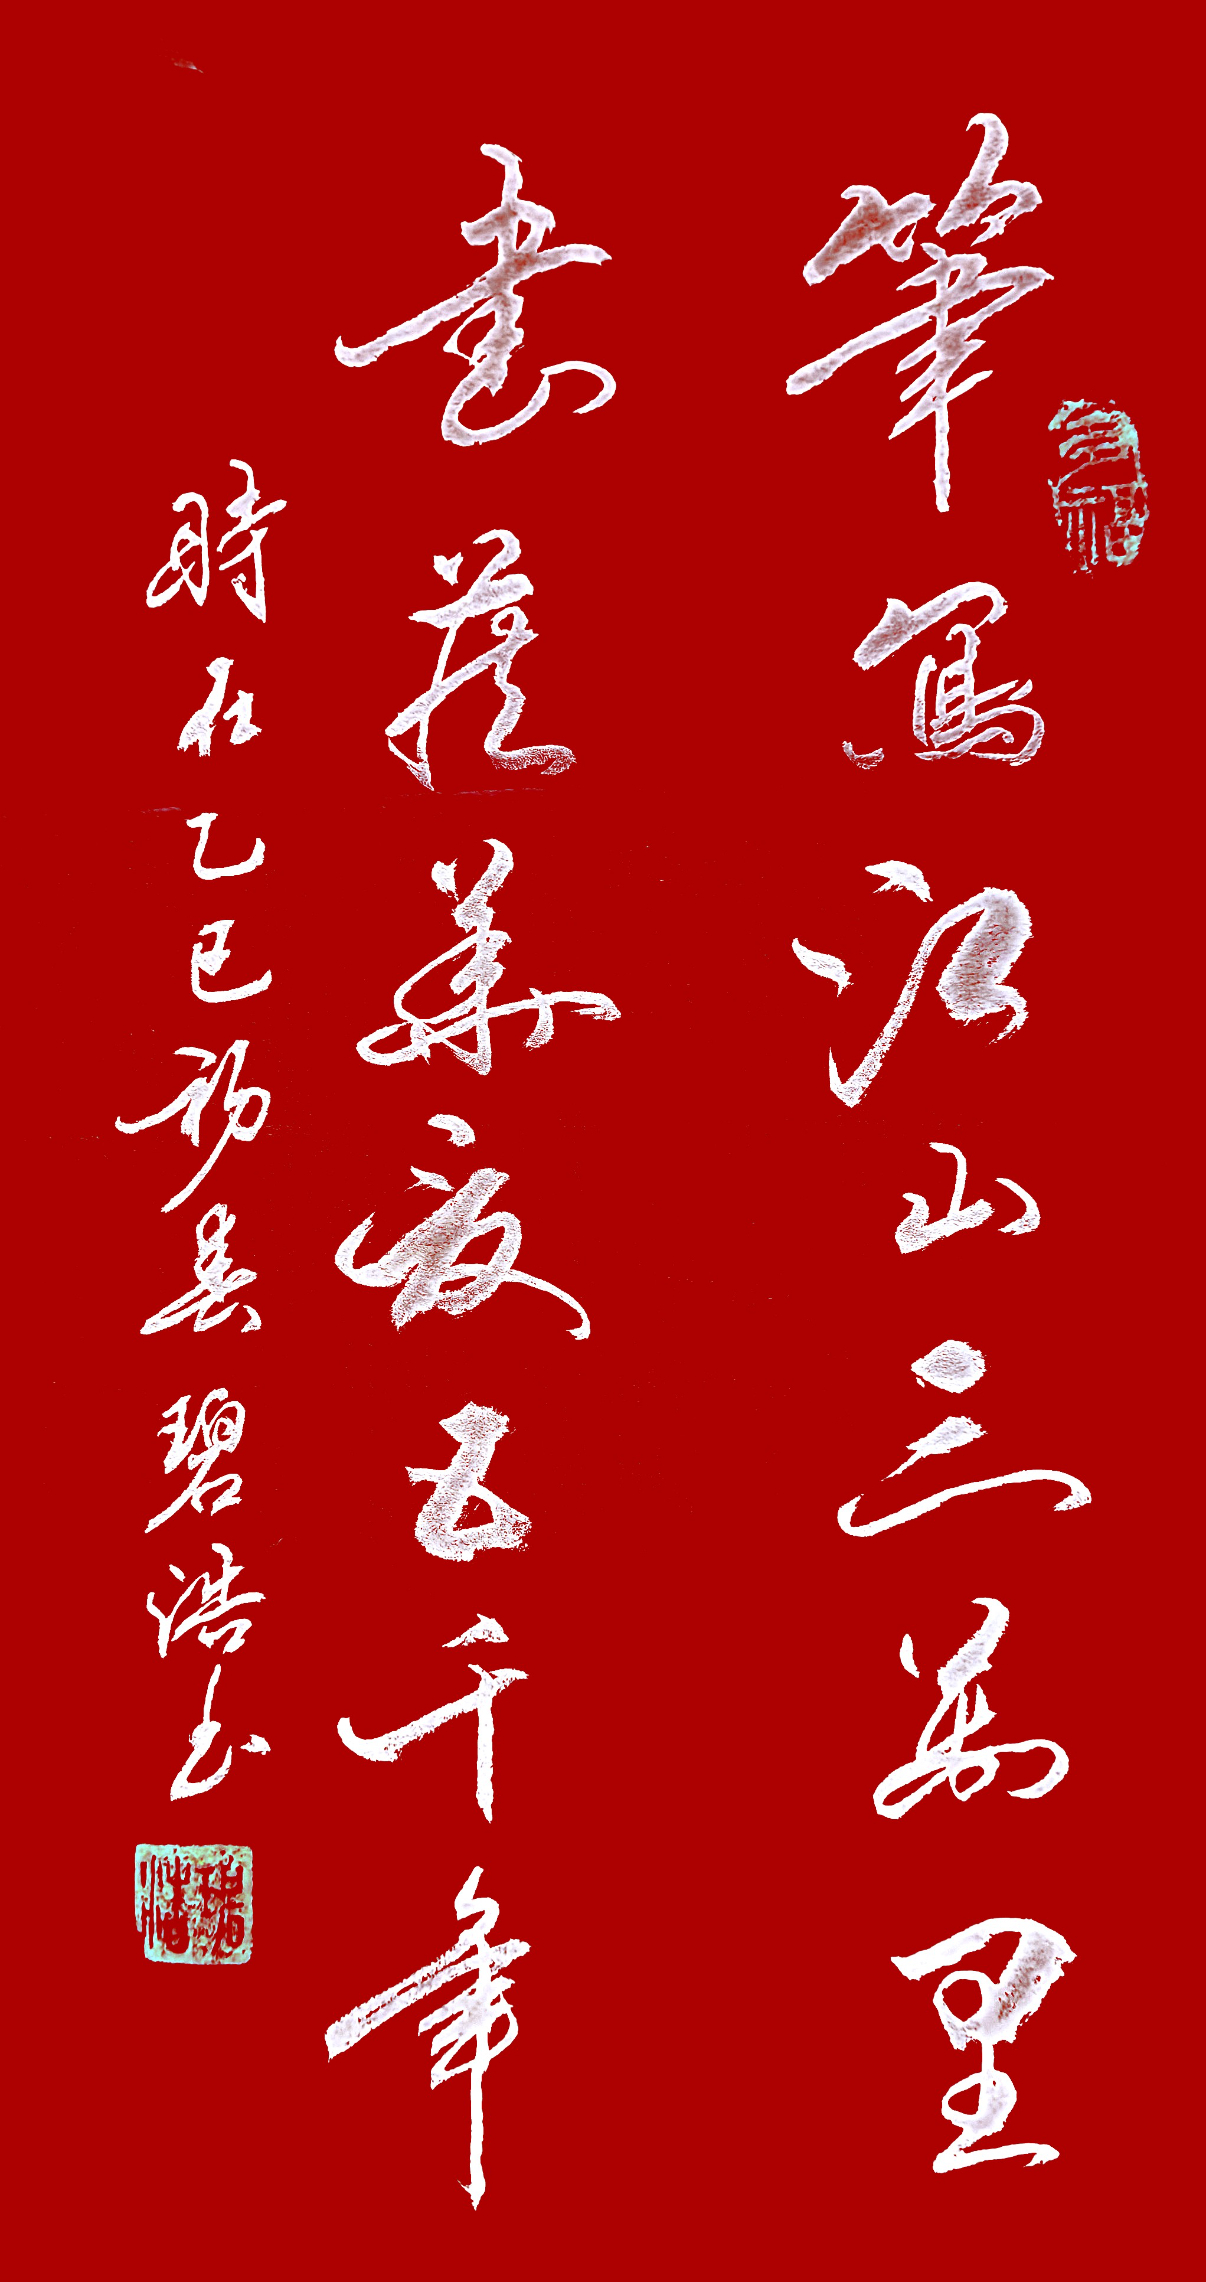 筆寫江山三萬里
多福
書藏華夏五千年
時在乙巳初春碧浩书